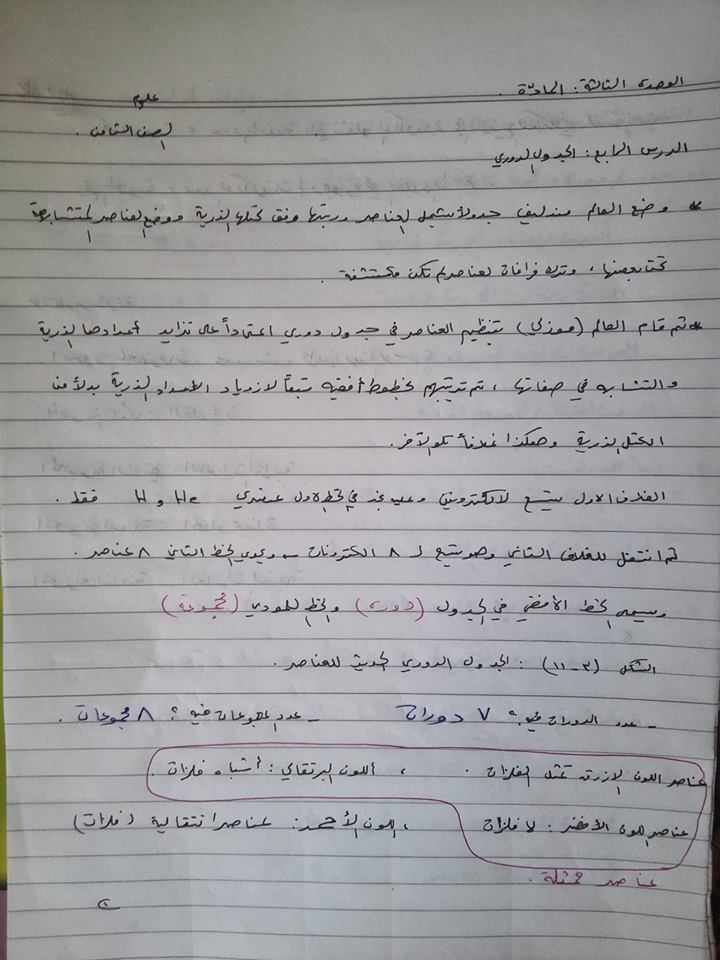 الوحدة الثالثة: المادّة.
علوم
الصف الثامن.
الدرس الرابع: الجدول الدوري
* وضع العالم مندليف جدولاً يشمل العناصر ورتبها وفق كتلها الذرية ووضع العناصر المتشابهة
تحت بعضها، وترك فراغات لعناصر لم تكن مكتشفة.
* ثم قام العالم (موزلي) بتنظيم العناصر في جدول دوري اعتماداً على تزايد أعدادها الذرية
والتشابه في صفاتها، تم ترتيبهم بخطوط أفقية تبعاً لازدياد الأعداد الذرية بدلاً من
الكتل الذرية وهكذا غلافاً تلو الآخر.
الغلاف الاول يتسع لالكترونين وعليه نجد في الخط الاول عنصري H و He فقط.
ثم انتقل للغلاف الثاني وهو يتسع لـ ٨ الكترونات - ويحوي الخط الثاني ٨ عناصر.
ويسمى الخط الأفقي في الجدول (دورة) والخط العمودي (مجموعة)
الشكل (٣-١١): الجدول الدوري الحديث للعناصر.
- عدد الدورات فيه؟ ٧ دورات - عدد المجموعات فيه؟ ٨ مجموعات.
عناصر اللون الازرق تمثل الفلزات. ، اللون البرتقالي: أشباه فلزات.
عناصر اللون الأخضر: لا فلزات ، اللون الأحمر: عناصر انتقالية (فلزات)
عناصر ممثلة.